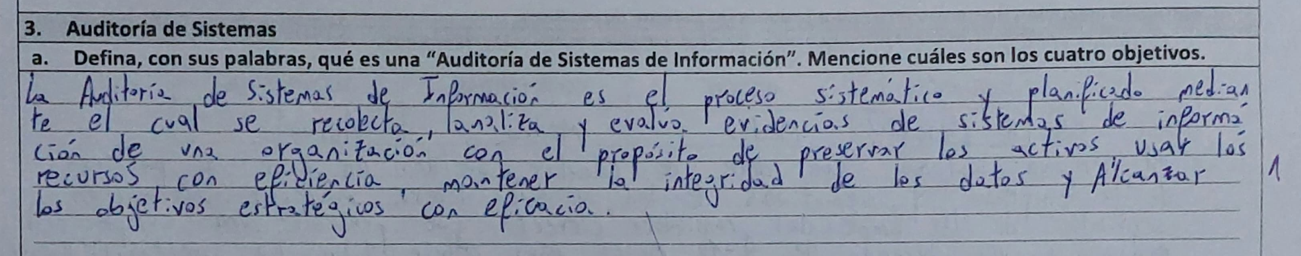 3. Auditoría de Sistemas
a. Defina, con sus palabras, qué es una “Auditoría de Sistemas de Información”. Mencione cuáles son los cuatro objetivos.
La Auditoría de Sistemas de Información es el proceso sistemático y planificado median
te el cual se recolecta, analiza y evalua evidencias de sistemas de informa
ción de una organización con el propósito de preservar los activos usar los
recursos con eficiencia, mantener la integridad de los datos y Alcanzar 1
los objetivos estratégicos con eficacia.